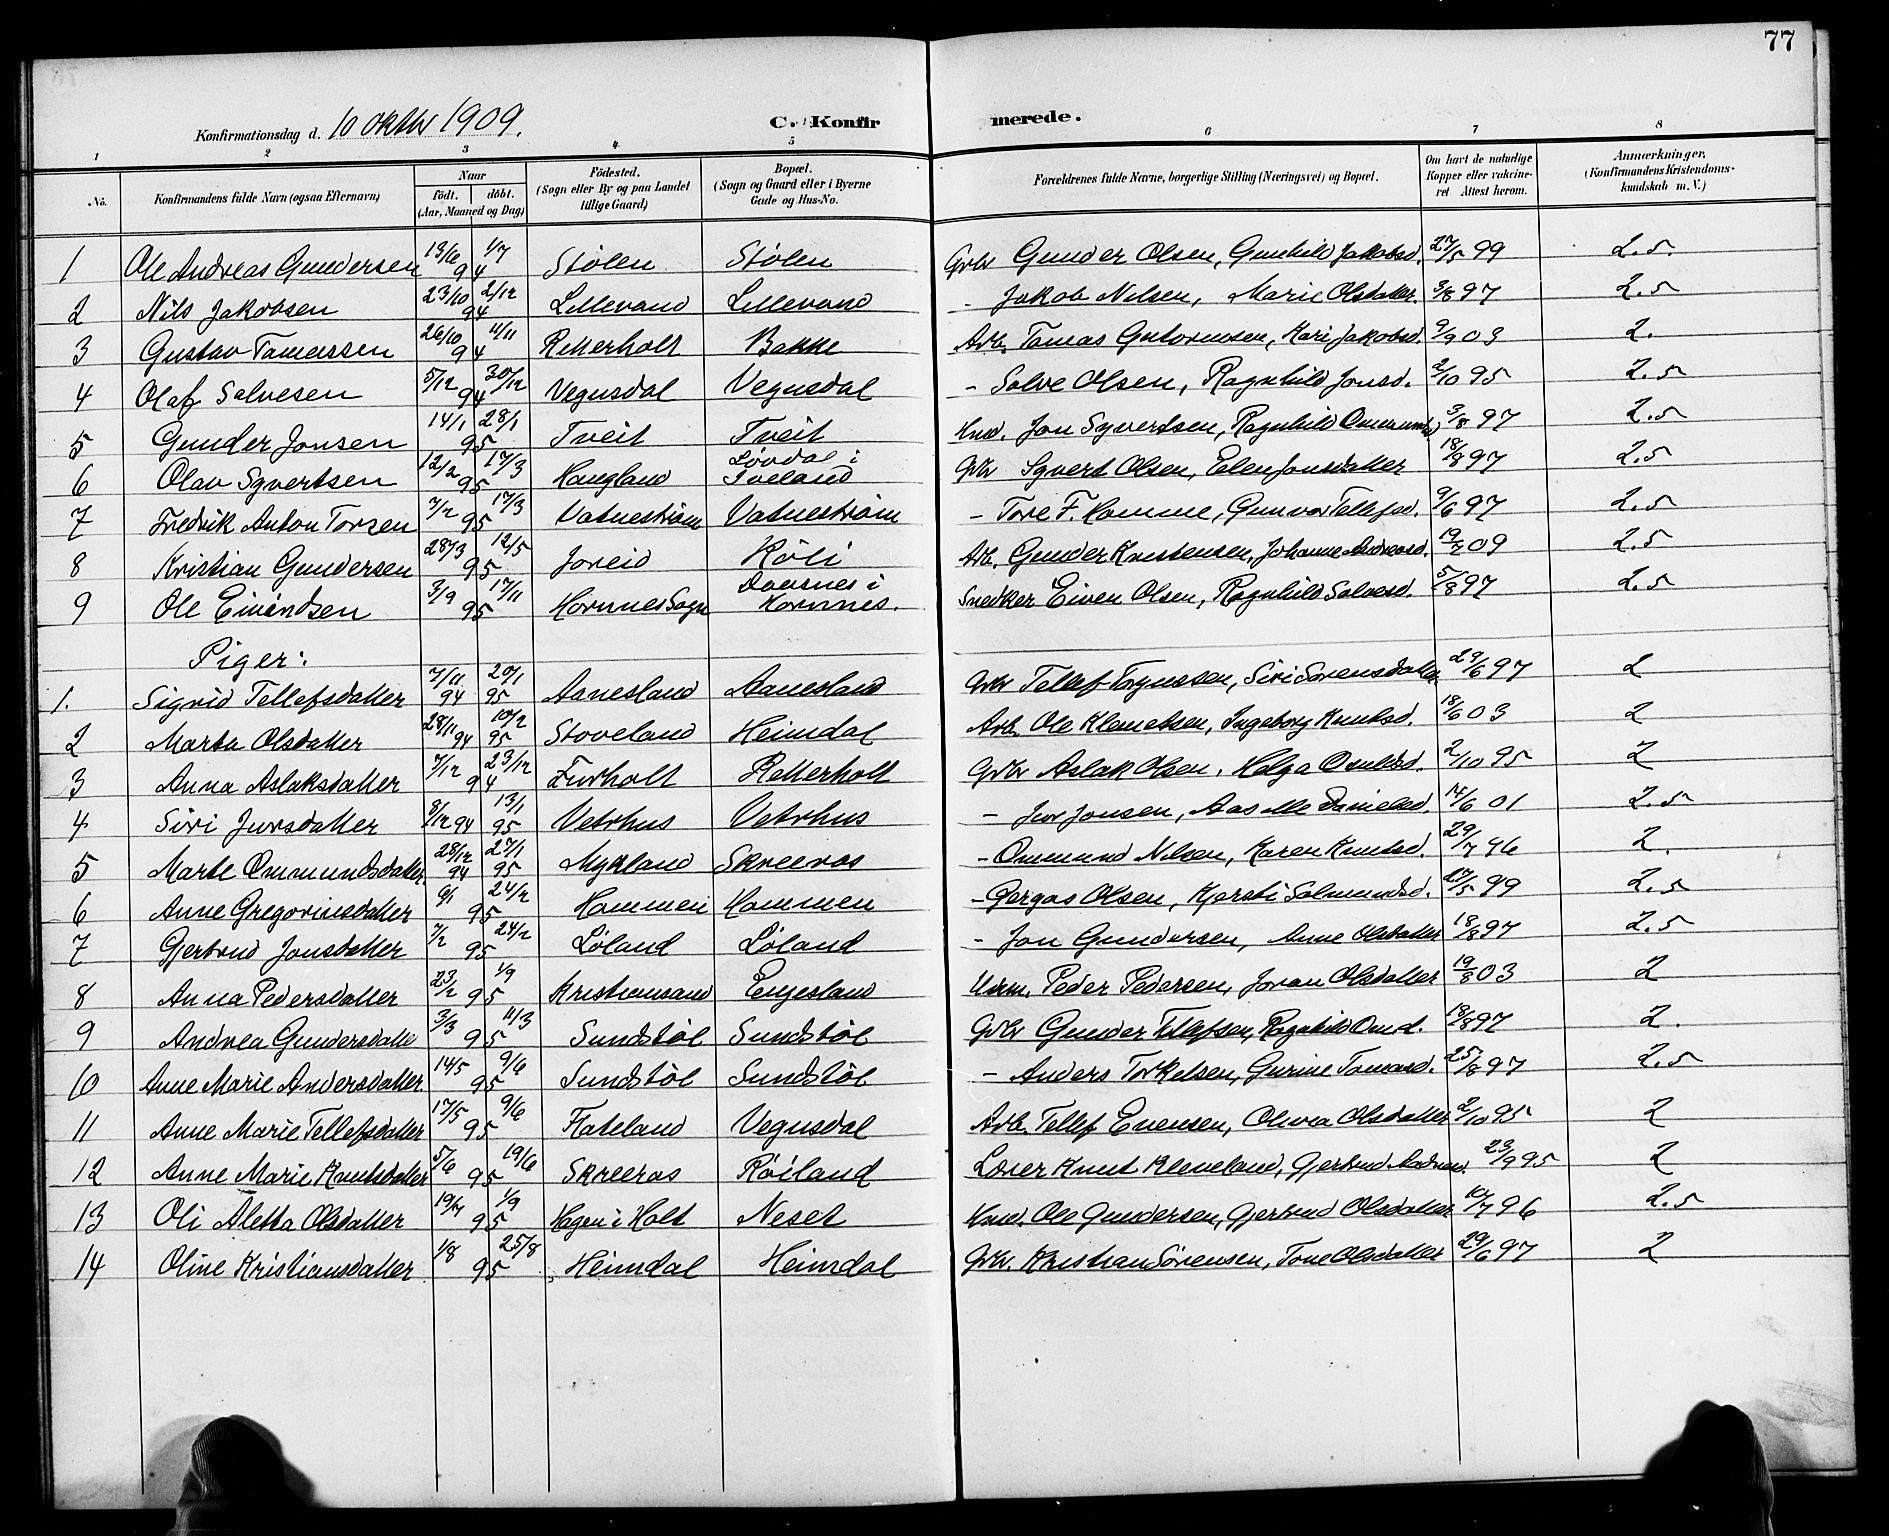 77
Konfirmationsdag d. 10 oktbr 1909.
C. Konfirmerede.
1 2 3 4 5 6 7 8
No. Konfirmandens fulde Navn (ogsaa Efternavn) Naar født. døbt. (Aar, Maaned og Dag) Fødested. (Sogn eller By og paa Landet tillige Gaard) Bopæl. (Sogn og Gaard eller i Byerne Gade og Hus-No. Forældrenes fulde Navne, borgerlige Stilling (Næringsvei) og Bopæl. Om havt de naturlige Kopper eller vaccineret. Attest herom. Anmærkninger. (Konfirmandens Kristendomskundskab m. V.)
1 Ole Andreas Gundersen 13/6 1/7 94 Stølen Stølen Gbr Gunder Olsen, Gunhild Jakobsd. 27/5 99 2.5
2 Nils Jakobsen 23/10 2/12 94 Lillevand Lillevand - Jakob Nilsen, Marie Olsdatter 3/8 97 2.5
3 Gustav Tomassen 26/10 11/11 94 Retterholt Bakke Arb. Tomas Gutormsen, Kari Jakobsd. 9/9 03 2.
4 Olaf Salvesen 5/12 30/12 94 Vegusdal Vegusdal - Salve Olsen, Ragnhild Jonsd. 2/10 95 2.5
5 Gunder Jonsen 14/1 28/1 95 Tveit Tveit Hmd. Jon Syvertsen, Ragnhild 3/8 97 2.5
6 Olav Syvertsen 12/2 17/3 95 Haugland Løvdal i Iveland Gbr Syvert Olsen, Ellen Jonsdatter 18/8 97 2.5
7 Fredrik Anton Torsen 7/2 17/3 95 Vatnestrøm Vatnestrøm - Tore F. Homme, Gunvor Tellefsd. 9/6 97 2.5
8 Kristian Gundersen 28/3 12/5 95 Joreid Røli Arb. Gunder Kristensen, Johanne Andreasd. 19/7 09 2.5
9 Ole Eivindsen 3/9 17/11 95 Hornnes Sogn Daasnes i Hornnes. Snedker Eiven Olsen, Ragnhild Salvesd. 5/8 97 2.5
Piger:
1. Sigrid Tellefsdatter 7/11 94 20/1 95 Aanesland Aanesland Gbr Tellef Torjussen, Siri Sorensdatter 29/6 97 2
2 Marta Olsdatter 28/11 94 10/2 95 Stoveland Heimdal Arb. Ole Klemetsen, Ingeborg Knutsd. 18/6 03 2
3 Anna Aslaksdatter 7/12 23/12 94 Furholt Retterholt Gbr Aslak Olsen, Helga 2/10 95 2
4 Siri Jursdatter 8/12 94 13/1 95 Vetrhus Vetrhus - Jur Jonsen, Aasille Danielsd. 14/6 01 2.5
5 Marte Ommundsdatter 28/12 94 27/1 95 Mykland Skreeros - Ommund Nilsen, Karen Knutsd. 29/7 96 2.
6 Anne Gregoriusdatter 9/1 24/2 95 Hommen Hommen - Gergas Olsen, Kjersti Salmundsd. 27/5 99 2.5
7 Gjertrud Jonsdatter 7/2 24/2 95 Løland Løland - Jon Gundersen, Anne Olsdatter 18/8 97 2.5
8 Anna Pedersdatter 23/2 1/9 95 Kristiansand Engesland Peder Pedersen, Joran Olsdatter 19/8 03 2
9 Andrea Gundersdatter 3/3 11/3 95 Sundstøl Sundstøl Gbr Gunder Tellefsen, Ragnhild 19/8 97 2.
10 Anne Marie Andersdatter 14/5 9/6 95 Sundstøl Sundstøl - Anders Torkelsen, Gurine Tomasd. 25/8 97 2.5
11 Anne Marie Tellefsdatter 17/5 9/6 95 Flateland Vegusdal Arb. Tellef Evensen, Olivea Olsdatter 2/10 95 2
12 Anne Marie Knutsdatter 5/6 19/6 95 Skreeros Røiland Lærer Knut Kleveland, Gjertrud 23/9 95 2
13 Oli Aletta Olsdatter 1/9 95 Hagen i Holt Neset Hmd. Ole Gundersen, Gjertrud Olsdatter 10/7 96 2.5
14 Oline Kristiansdatter 1/8 25/8 95 Heimdal Heimdal Gbr. Kristian Sørensen, Tone Olsdatter 29/6 97 2